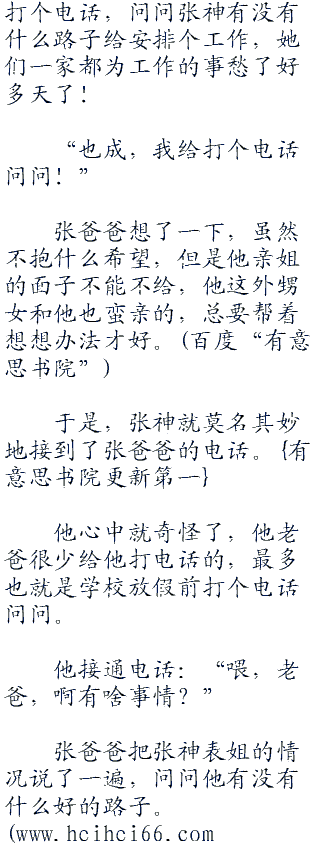 打个电话，问问张神有没有
什么路子给安排个工作，她
们一家都为工作的事愁了好
多天了！
“也成，我给打个电话
问问！”
张爸爸想了一下，虽然
不抱什么希望，但是他亲姐
的面子不能不给，他这外甥
女和他也蛮亲的，总要帮着
想想办法才好。(百度“有意
思书院”)
于是，张神就莫名其妙
地接到了张爸爸的电话。{有
意思书院更新第一}
他心中就奇怪了，他老
爸很少给他打电话的，最多
也就是学校放假前打个电话
问问。
他接通电话：“喂，老
爸，啊有啥事情？”
张爸爸把张神表姐的情
况说了一遍，问问他有没有
什么好的路子。
(www.hcihci66.com